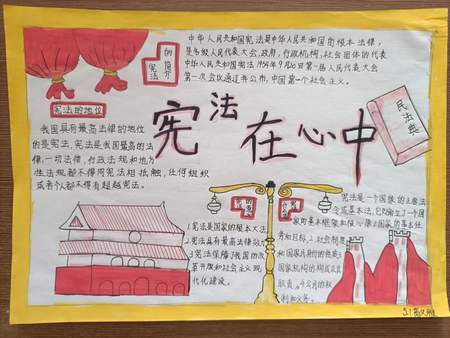 宪法
的简介
中华人民共和国宪法是中华人民共和国的根本法律,
是各级人民代表大会,政府,行政机构,社会团体的代表
中华人民共和国宪法1954年9月20日第一届人民代表大会
第一次会议通过并公布,中国第一个社会主义。
宪法在心中
民法典
宪法的地位
我国具有最高法律的地位
的是宪法,宪法是我国最高的法
律,一切法律,行政法规和地方
性法规都不得同宪法相抵触,任何组织
或者个人都不得有超越宪法。
1.宪法是国家的根本大法
2.宪法具有最高法律效力
3.宪法保障了我国的改
革开放和社会主义现
代化建设。
宪法是一个国家的主体法
国家的基本性
务和目标,2.社会制度
国家机构的构成及其
职责,4.公民的权
利和义务。